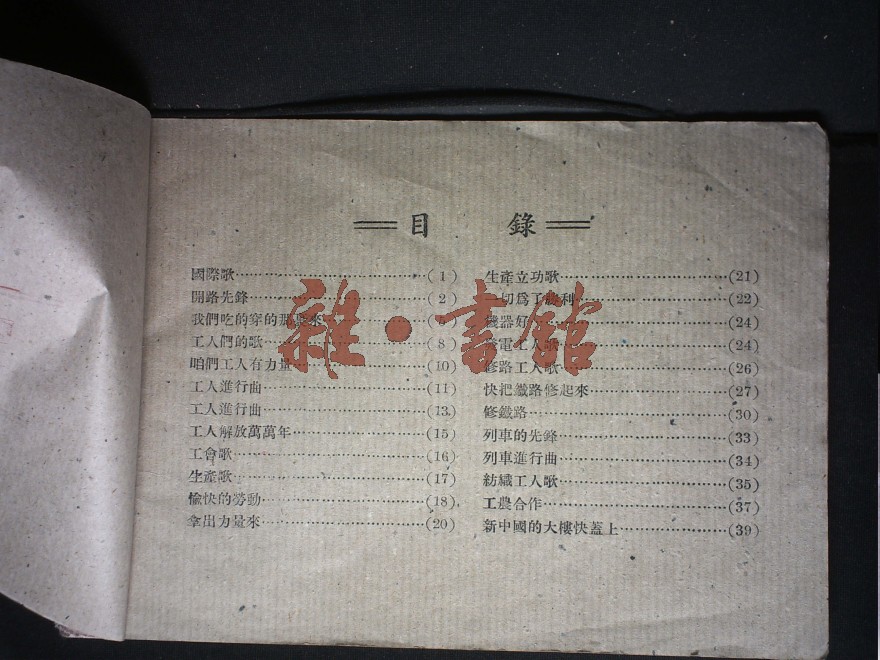 目 錄
國際歌(1)
開路先鋒(2)
我們吃的穿的那裏來
工人們的歌(8)
咱們工人有力量(10)
工人進行曲(11)
工人進行曲(13)
工人解放萬萬年(15)
工會歌(16)
生產歌(17)
愉快的勞動(18)
拿出力量來(20)
生產立功歌(21)
一切爲了勝利(22)
機器好(24)
電工人歌(24)
修路工人歌(26)
快把鐵路修起來(27)
修鐵路(30)
列車的先鋒(33)
列車進行曲(34)
紡織工人歌(35)
工農合作(37)
新中國的大樓快蓋上(39)
雜·書館